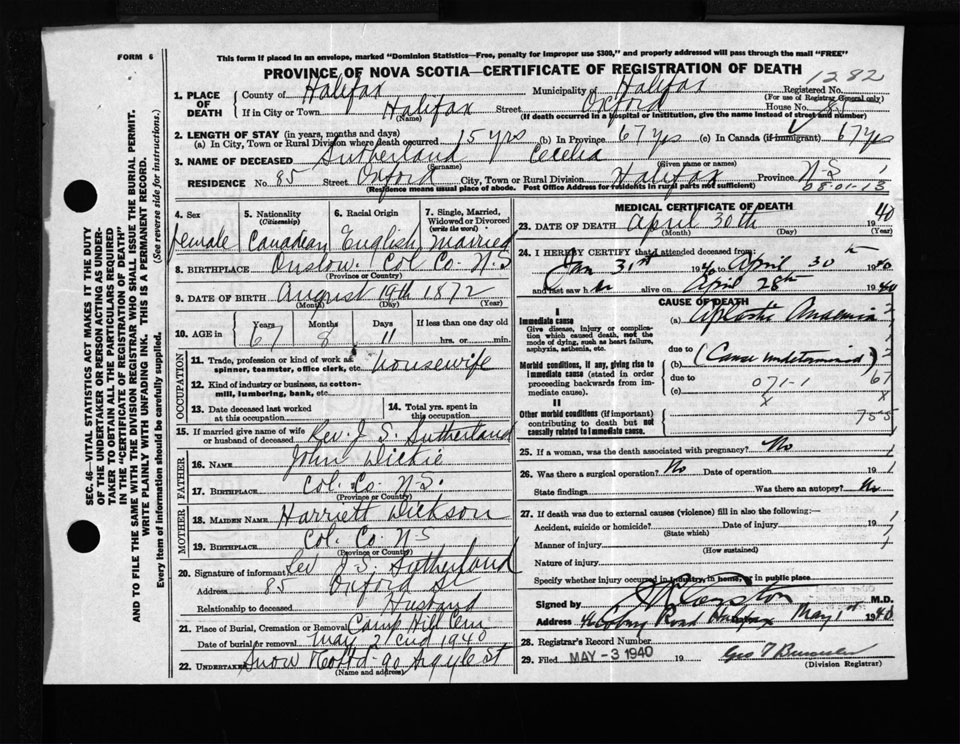 FORM 6
This form if placed in an envelope, marked "Dominion Statistics—Free, penalty for improper use $300," and properly addressed will pass through the mail "FREE"
PROVINCE OF NOVA SCOTIA—CERTIFICATE OF REGISTRATION OF DEATH
1282
SEC. 46—VITAL STATISTICS ACT MAKES IT THE DUTY OF THE UNDERTAKER OR PERSON ACTING AS UNDERTAKER TO OBTAIN ALL THE PARTICULARS REQUIRED IN THE "CERTIFICATE OF REGISTRATION OF DEATH"
AND TO FILE THE SAME WITH THE DIVISION REGISTRAR WHO SHALL ISSUE THE BURIAL PERMIT.
WRITE PLAINLY WITH UNFADING INK. THIS IS A PERMANENT RECORD.
Every item of information should be carefully supplied. (See reverse side for instructions.)
1. PLACE OF DEATH
County of Halifax Municipality of Halifax Registered No.
(For use of Registrar General only)
If in City or Town Halifax Street Oxford House No. 85
(Name) (If death occurred in a hospital or institution, give the name instead of street and number)
2. LENGTH OF STAY (in years, months and days)
(a) In City, Town or Rural Division where death occurred 15 yrs (b) in Province 67 yrs (c) In Canada (if immigrant) 67 yrs
3. NAME OF DECEASED Sutherland Cecelia
(Surname) (Given name or names)
RESIDENCE No. 85 Street Oxford City, Town or Rural Division Halifax Province N-S 1
(Residence means usual place of abode. Post Office Address for residents in rural parts not sufficient) 08-01-13
4. Sex female
5. Nationality (Citizenship) Canadian
6. Racial Origin English
7. Single, Married, Widowed or Divorced (write the word) Married
8. BIRTHPLACE Onslow. Col Co. N.S
(Province or Country)
9. DATE OF BIRTH August 19th 1872
(Month) (Day) (Year)
10. AGE in Years 67 Months 8 Days 11 If less than one day old hrs. or min.
OCCUPATION
11. Trade, profession or kind of work as spinner, teamster, office clerk, etc. housewife
12. Kind of industry or business, as cotton-mill, lumbering, bank, etc.
13. Date deceased last worked at this occupation
14. Total yrs. spent in this occupation
15. If married give name of wife or husband of deceased Rev. J S. Sutherland
FATHER
16. NAME John Dickie
17. BIRTHPLACE Col. Co. N-S.
(Province or Country)
MOTHER
18. MAIDEN NAME Harriett Dickson
19. BIRTHPLACE Col. Co. N-S
(Province or Country)
20. Signature of informant Rev J. S. Sutherland
Address 85 Oxford St
Relationship to deceased Husband
21. Place of Burial, Cremation or Removal Camp Hill Cem
Date of burial or removal May 2nd 1940
22. UNDERTAKER Snow & Co Ltd 90 Argyle St
(Name and address)
MEDICAL CERTIFICATE OF DEATH
23. DATE OF DEATH April 30th 1940
(Month) (Day) (Year)
24. I HEREBY CERTIFY that I attended deceased from:
Jan 31st 1940 to April 30th 1940
and last saw her alive on April 28th 1940
CAUSE OF DEATH
I
Immediate cause
Give disease, injury or complication which caused death, not the mode of dying, such as heart failure, asphyxia, asthenia, etc.
(a) Aplastic Anaemia
due to (Cause undetermined)
Morbid conditions, if any, giving rise to immediate cause (stated in order proceeding backwards from immediate cause).
(b)
due to 071-1
(c)
67
8
II
Other morbid conditions (if important) contributing to death but not causally related to immediate cause.
755
25. If a woman, was the death associated with pregnancy? No
26. Was there a surgical operation? No Date of operation 19
State findings Was there an autopsy? No
27. If death was due to external causes (violence) fill in also the following:—
Accident, suicide or homicide? Date of injury 19
(State which)
Manner of injury
(How sustained)
Nature of injury
Specify whether injury occurred in industry, in home, or in public place
Signed by M.D.
Address 46 Coburg Road Halifax May 1st 1940
28. Registrar's Record Number
29. Filed MAY -3 1940 19
(Division Registrar)